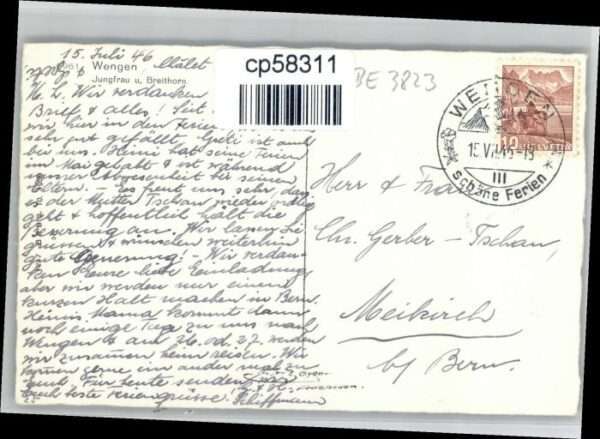 15. Juli 46
Wengen
Jungfrau u. Breithorn.
M. L. Wir verdanken
Brief & alles! Seit
wir hier in den Ferien
sehr gut gefällt. Greti ist auch
bei uns. Heini hat seine Ferien
im Mai gehabt & ist während
unser Abwesenheit bei seinen
Eltern. – Es freut uns sehr, dass
es der Mutter Tschan wieder
geht & hoffentlich hält die
Besserung an. Wir lassen Sie
grüssen & wünschen weiterhin
gute Genesung! – Wir verdan-
ken Eure liebe Einladung
aber wir werden nur einen
kurzen Halt machen in Bern.
Heinis Mama kommt dann
noch einige Tag zu uns nach
Wengen & am 26. od. 27. werden
wir zusammen heim reisen. Wir
kommen gerne ein ander mal zu
Euch. Für heute senden
Euch beste Feriengrüsse!
Schiffmann
cp58311
BE 3823
WENGEN
15.VII.46-15
III
schöne Ferien
10
HELVETIA
Herr & Frau
Chr. Gerber-Tschan,
Meikirch
b/ Bern.